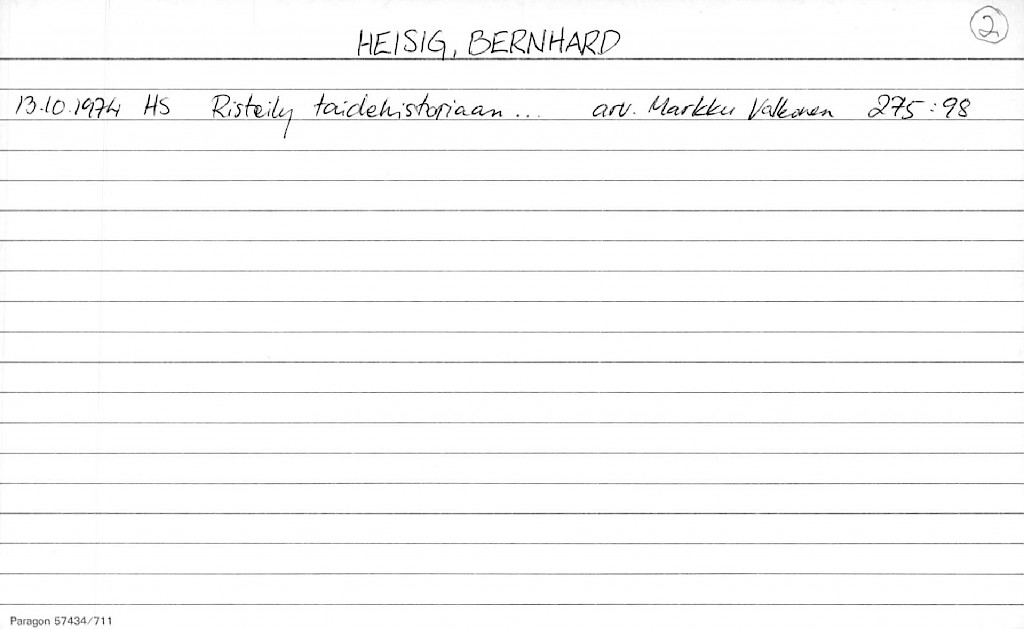 HEISIG, BERNHARD
2
13.10.1974 HS Risteily taidehistoriaan... arv. Markku Valkonen 275:98
Paragon 57434/711